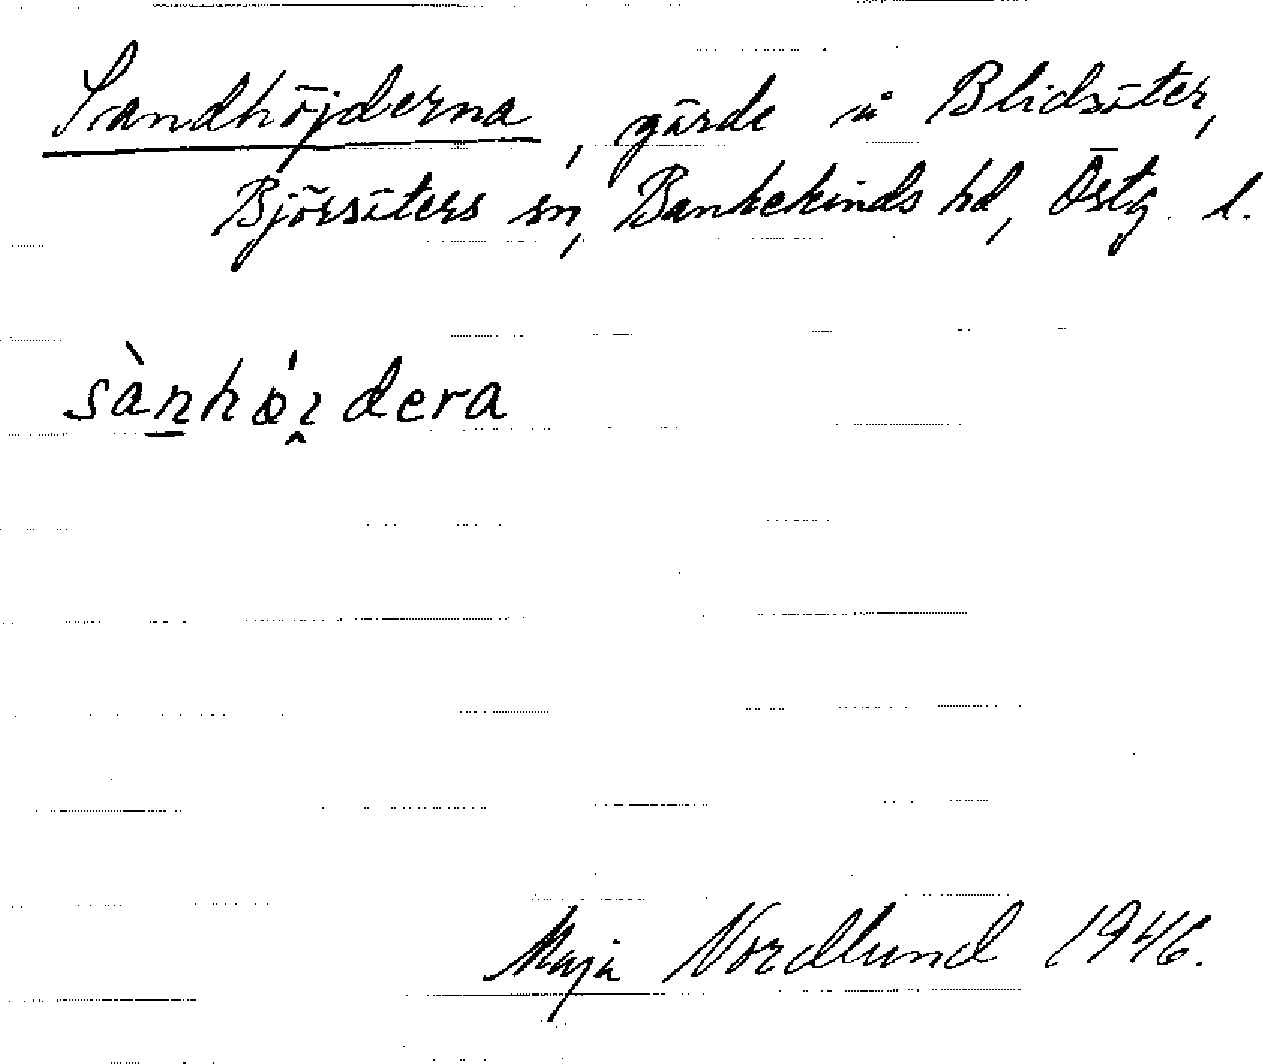 Sandhöjderna, gärde å Blidsäter,
Björsäters sn, Bankekinds hd, Östg. l.
sànhǿɩ̭dera
Maja Nordlund 1946.